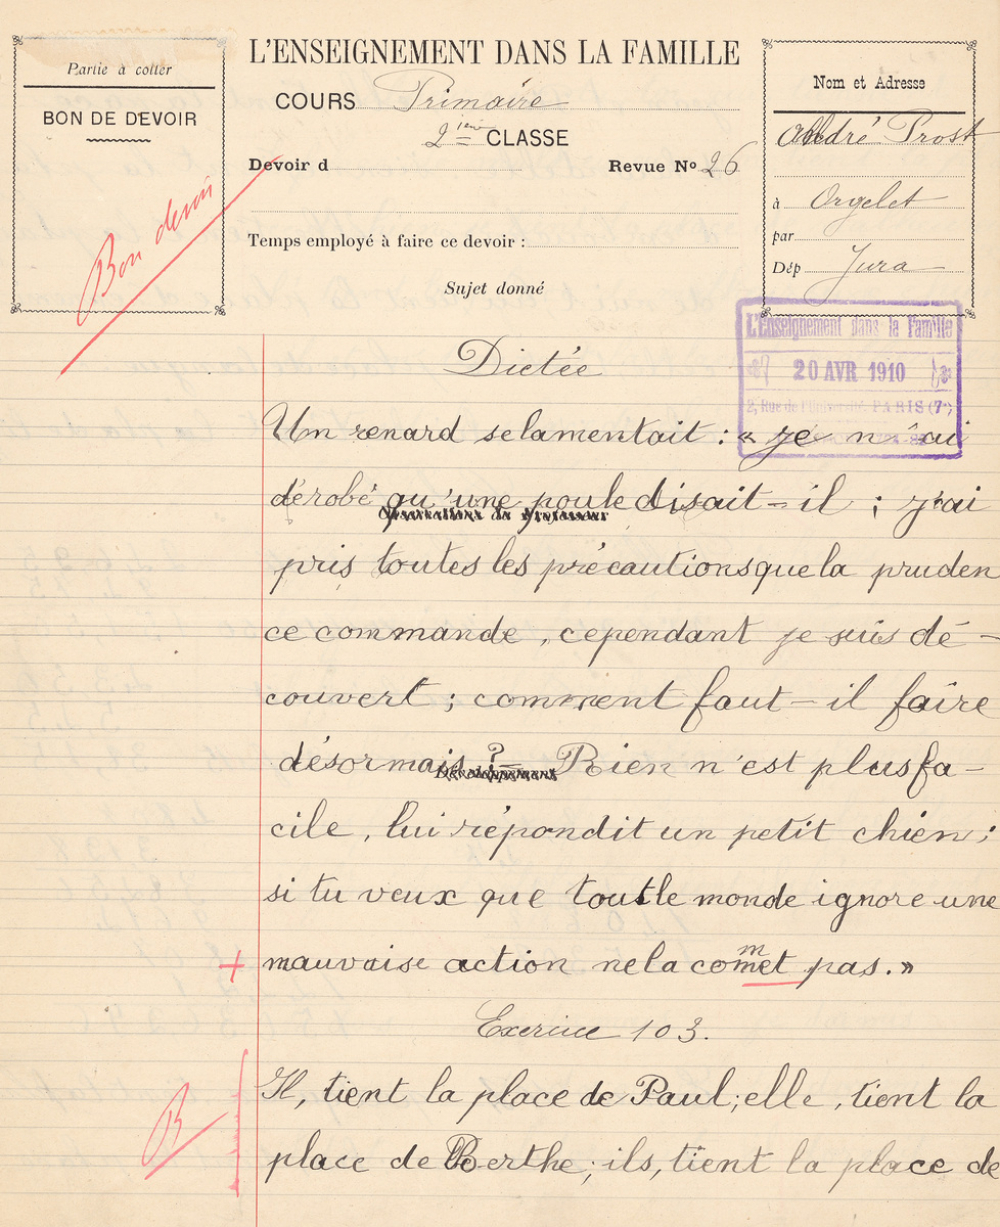 Partie à coller
BON DE DEVOIR
Bon devoir
L'ENSEIGNEMENT DANS LA FAMILLE
COURS Primaire
2ième CLASSE
Devoir d
Revue No 26
Temps employé à faire ce devoir :
Sujet donné
Nom et Adresse
André Prost
à Orgelet
par
Dép Jura
L'Enseignement dans la Famille
20 AVR 1910
2, Rue de l'Université. PARIS (7e)
Dictée
Un renard se lamentait : « je n'ai
dérobé qu'une poule disait-il ; j'ai
pris toutes les précautions que la pruden
ce commande, cependant je suis dé-
couvert ; comment faut-il faire
désormais ? – Rien n'est plus fa-
cile, lui répondit un petit chien ;
si tu veux que tout le monde ignore une
+ mauvaise action ne la comet pas. »
m
Exercice 103.
Il, tient la place de Paul ; elle, tient la
B
place de Berthe ; ils, tient la place de